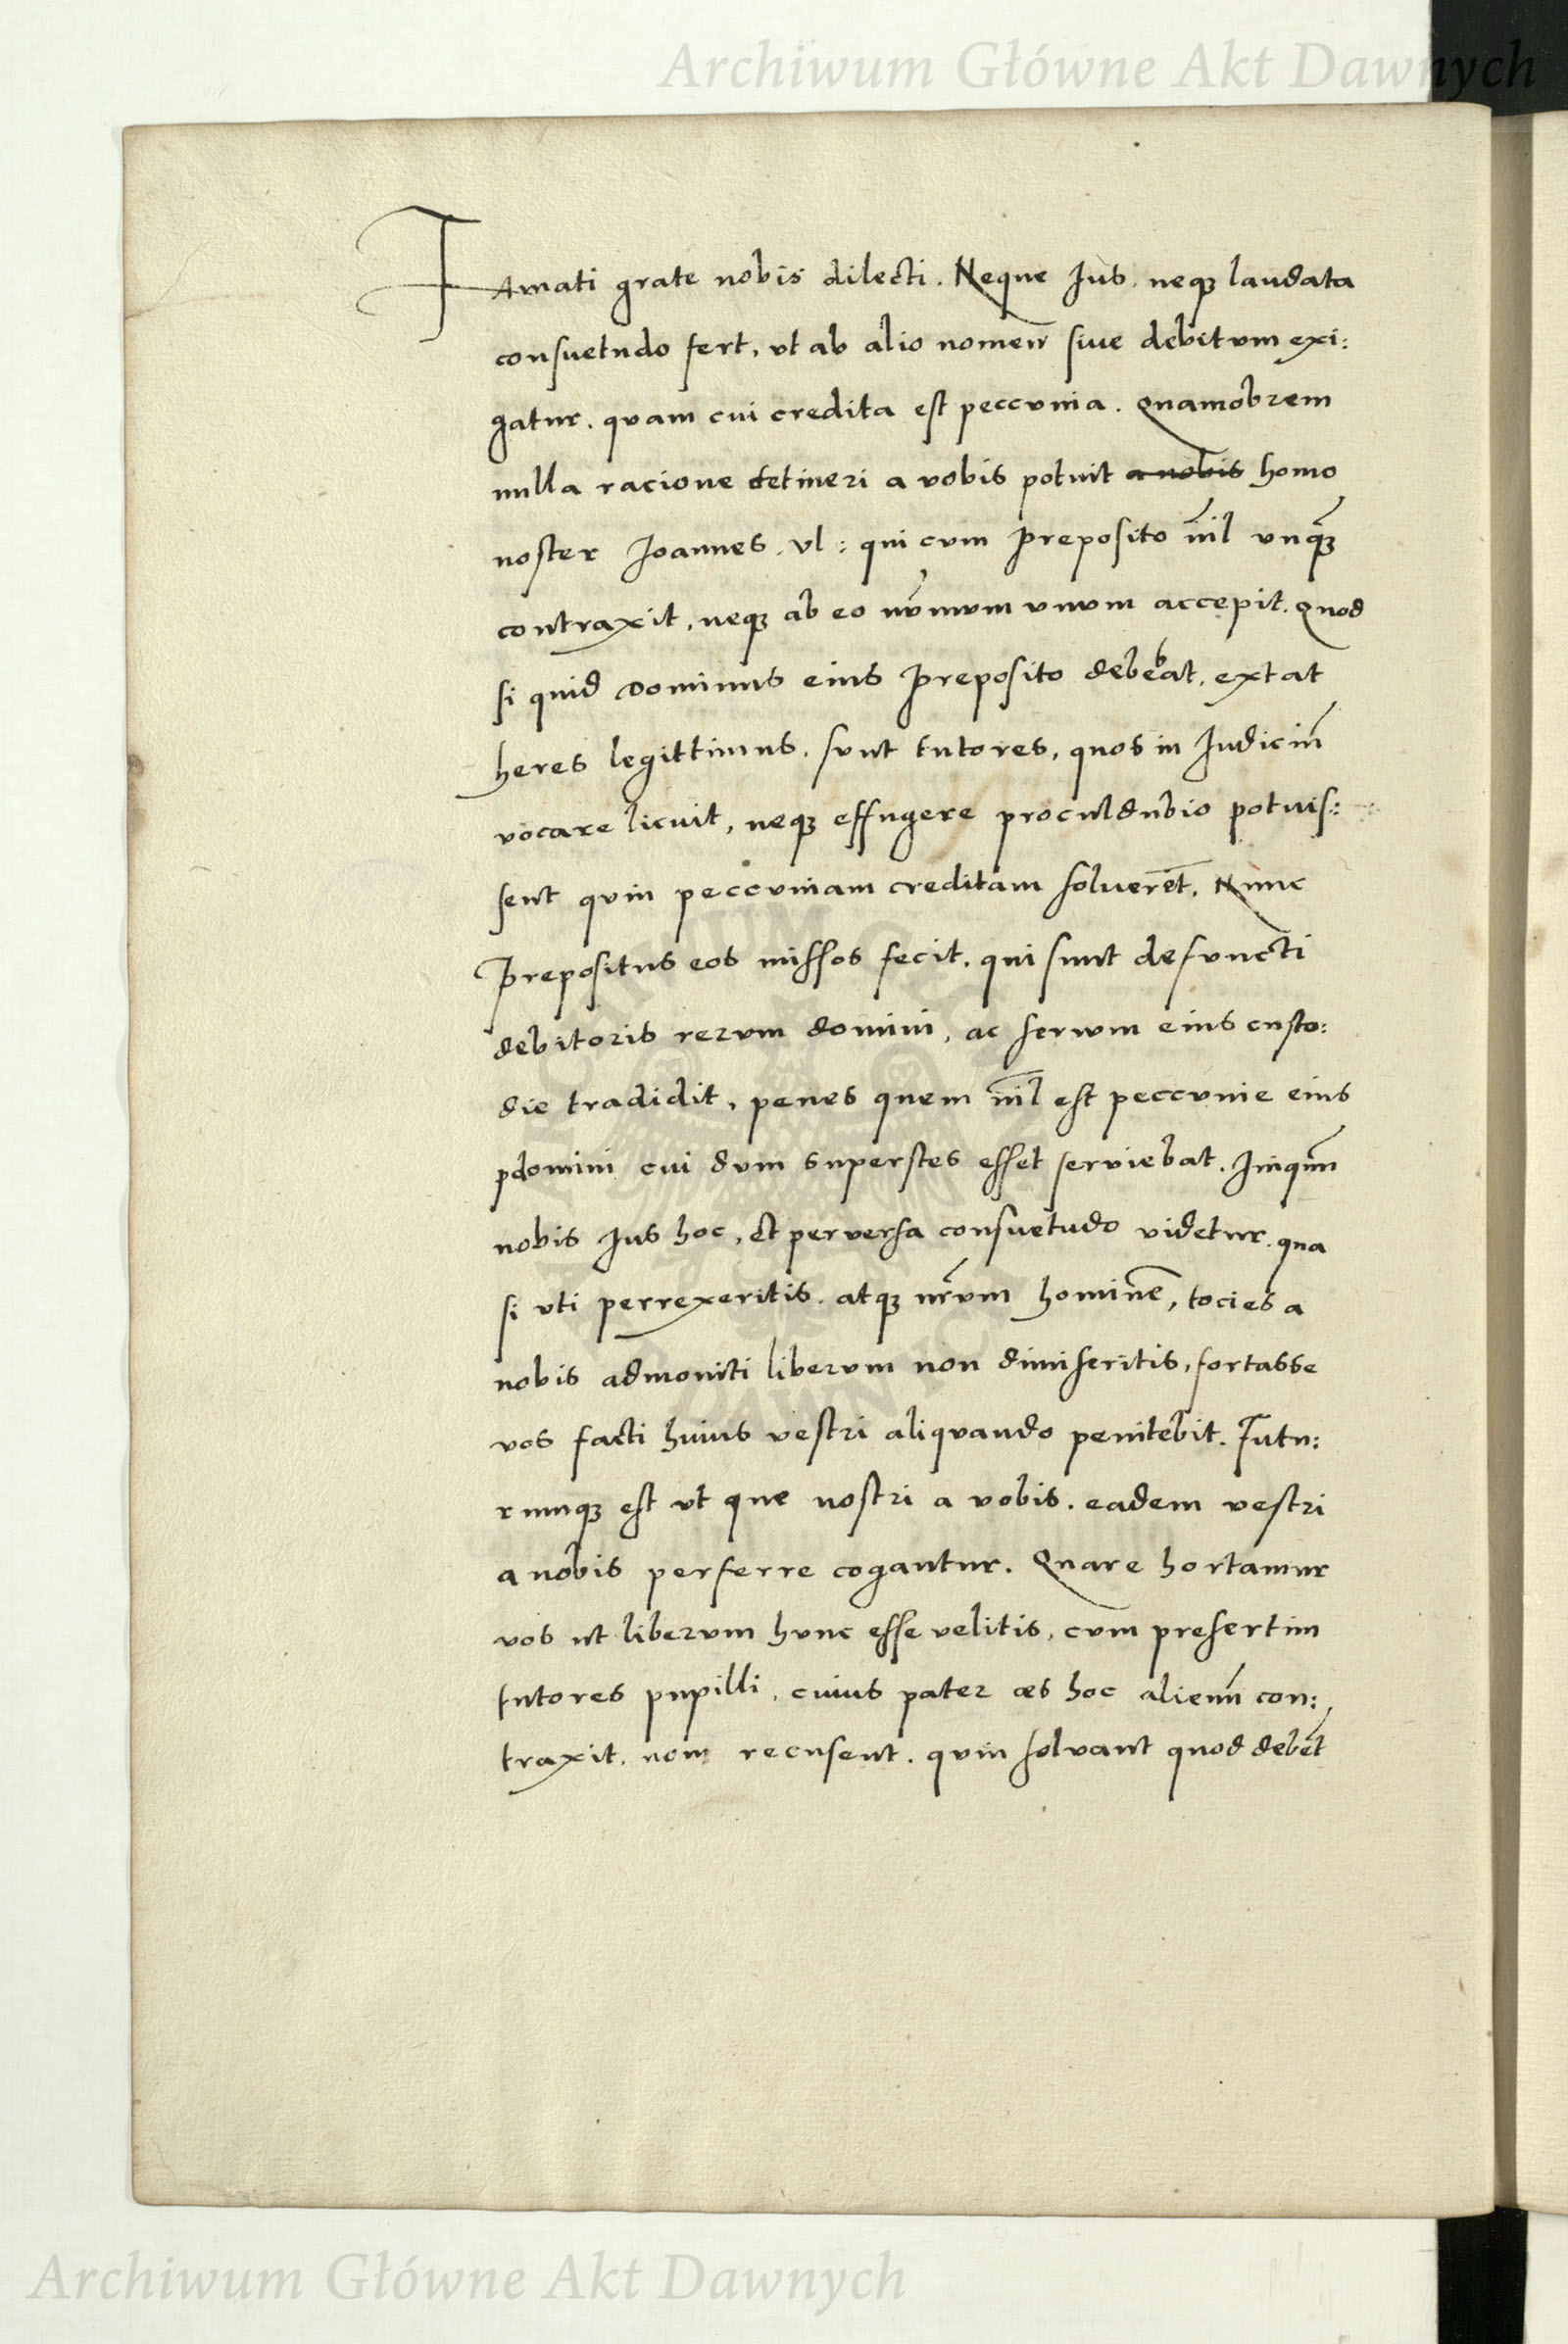 Archiwum Główne Akt Dawnych
Famati grate nobis dilecti. Neque Jus. neqꝫ laudata
consuetudo fert, vt ab alio nomen siue debitvm exi:
gatur. qvam cvi credita est peccvnia. Quamobrem
nulla racione detineri a vobis potuit a nobis homo
noster Joannes. vl: qui cvm preposito niil̃ vnqꝫ̃
contraxit, neqꝫ ab eo nv̄mvm vnvm accepit. Quod
si quid Dominus eius preposito debebat, extat
heres legittimus. svnt tutores, quos in Judiciu͂
vocare licvit, neqꝫ effugere proculdubio potuis:
sent qvin peccvniam creditam soluere͂t. Nunc
Prepositus eos missos fecit. qui sunt defvncti
debitoris rerum domini, ac servm eius custo:
die tradidit, penes quem niil̃ est peccvnie eius
pdomini cui dvm superstes esset serviebat. Iniquu͂
nobis Jus hoc, et perversa consuetudo videtur. qua
si vti perrexeritis. atqꝫ nr̃vm homine͂, tocies a
nobis admoniti libervm non dimiseritis, fortasse
vos facti huius vestri aliqvando penitebit. Futu:
rumqꝫ est vt que nostri a vobis. eadem vestri
a nobis perferre cogantur. Quare hortamur
vos ut libervm hvnc esse velitis, cvm presertim
tutores pupilli, cuius pater æs hoc alienu͂ con:
traxit. non recusent. qvin solvant quod debe͂t
Archiwum Główne Akt Dawnych